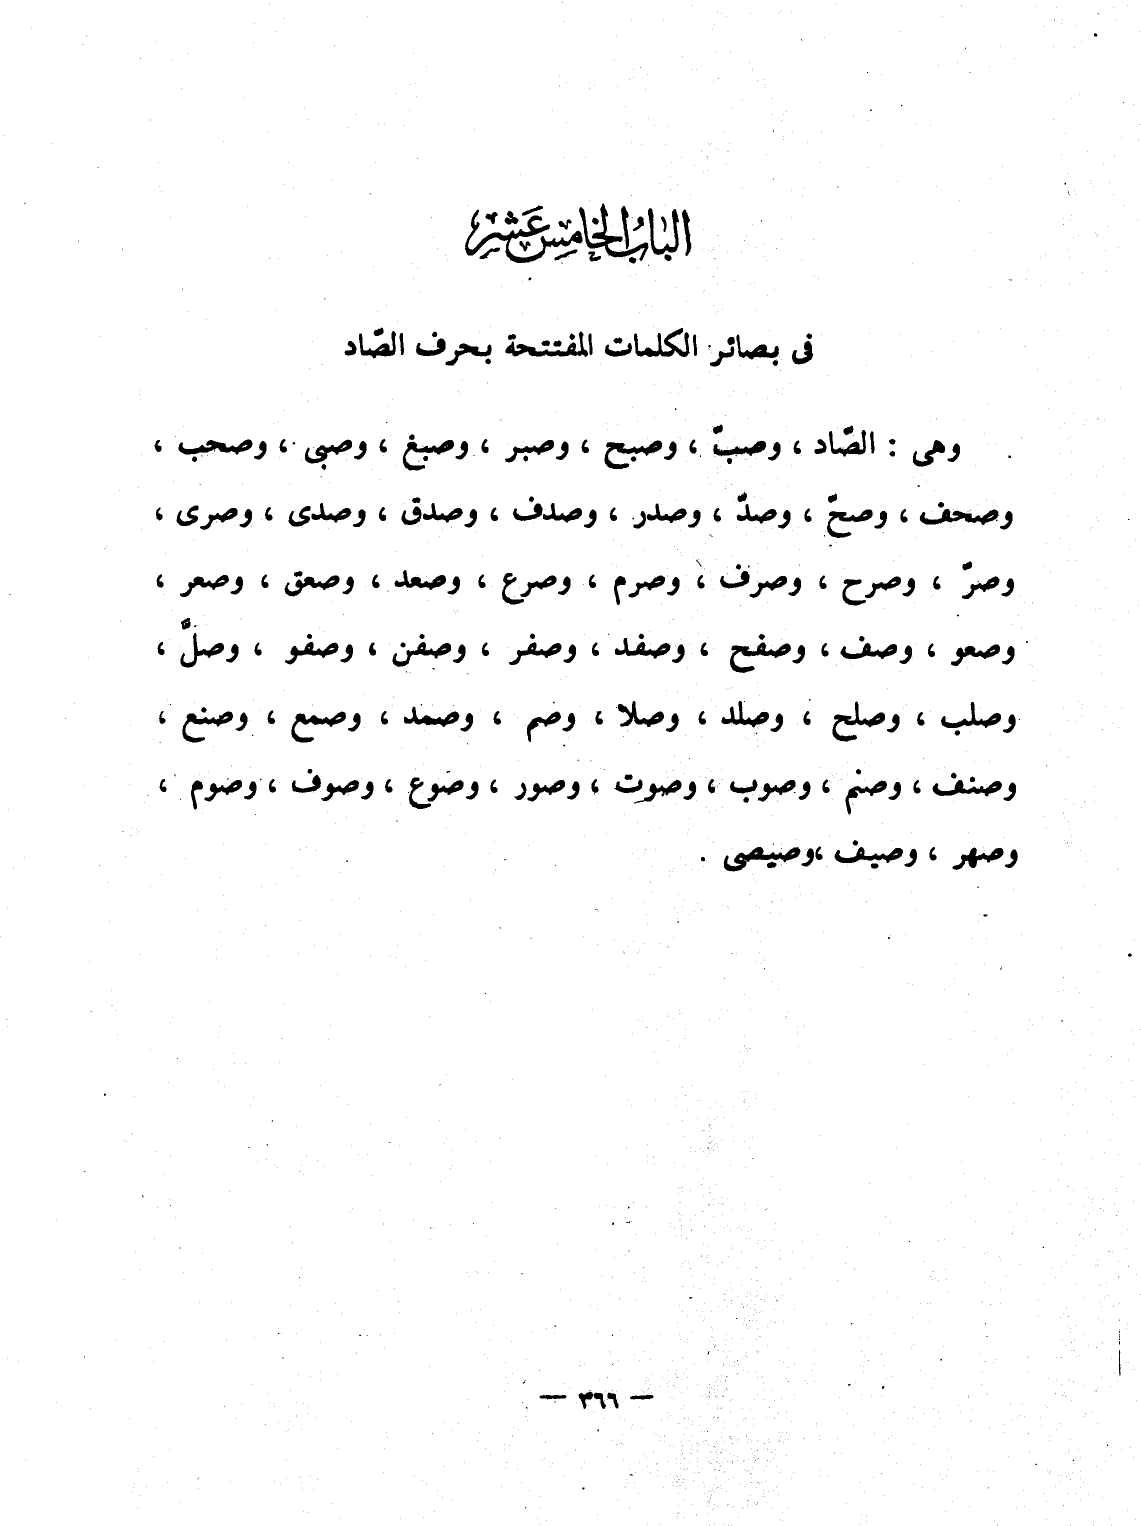 الباب الخامس عشر
فى بصائر الكلمات المفتتحة بحرف الصّاد
وهى : الصّاد ، وصبّ ، وصبح ، وصبر ، وصبغ ، وصبى ، وصحب ،
وصحف ، وصخّ ، وصدّ ، وصدر ، وصدف ، وصدق ، وصدى ، وصرى ،
وصرّ ، وصرح ، وصرف ، وصرم ، وصرع ، وصعد ، وصعق ، وصعر ،
وصعو ، وصف ، وصفح ، وصفد ، وصفر ، وصفن ، وصفو ، وصلَّ ،
وصلب ، وصلح ، وصلد ، وصلا ، وصم ، وصمد ، وصمع ، وصنع ،
وصنف ، وصنم ، وصوب ، وصوت ، وصور ، وصوع ، وصوف ، وصوم ،
وصهر ، وصيف ،وصيصى .
— ٣٦٦ —